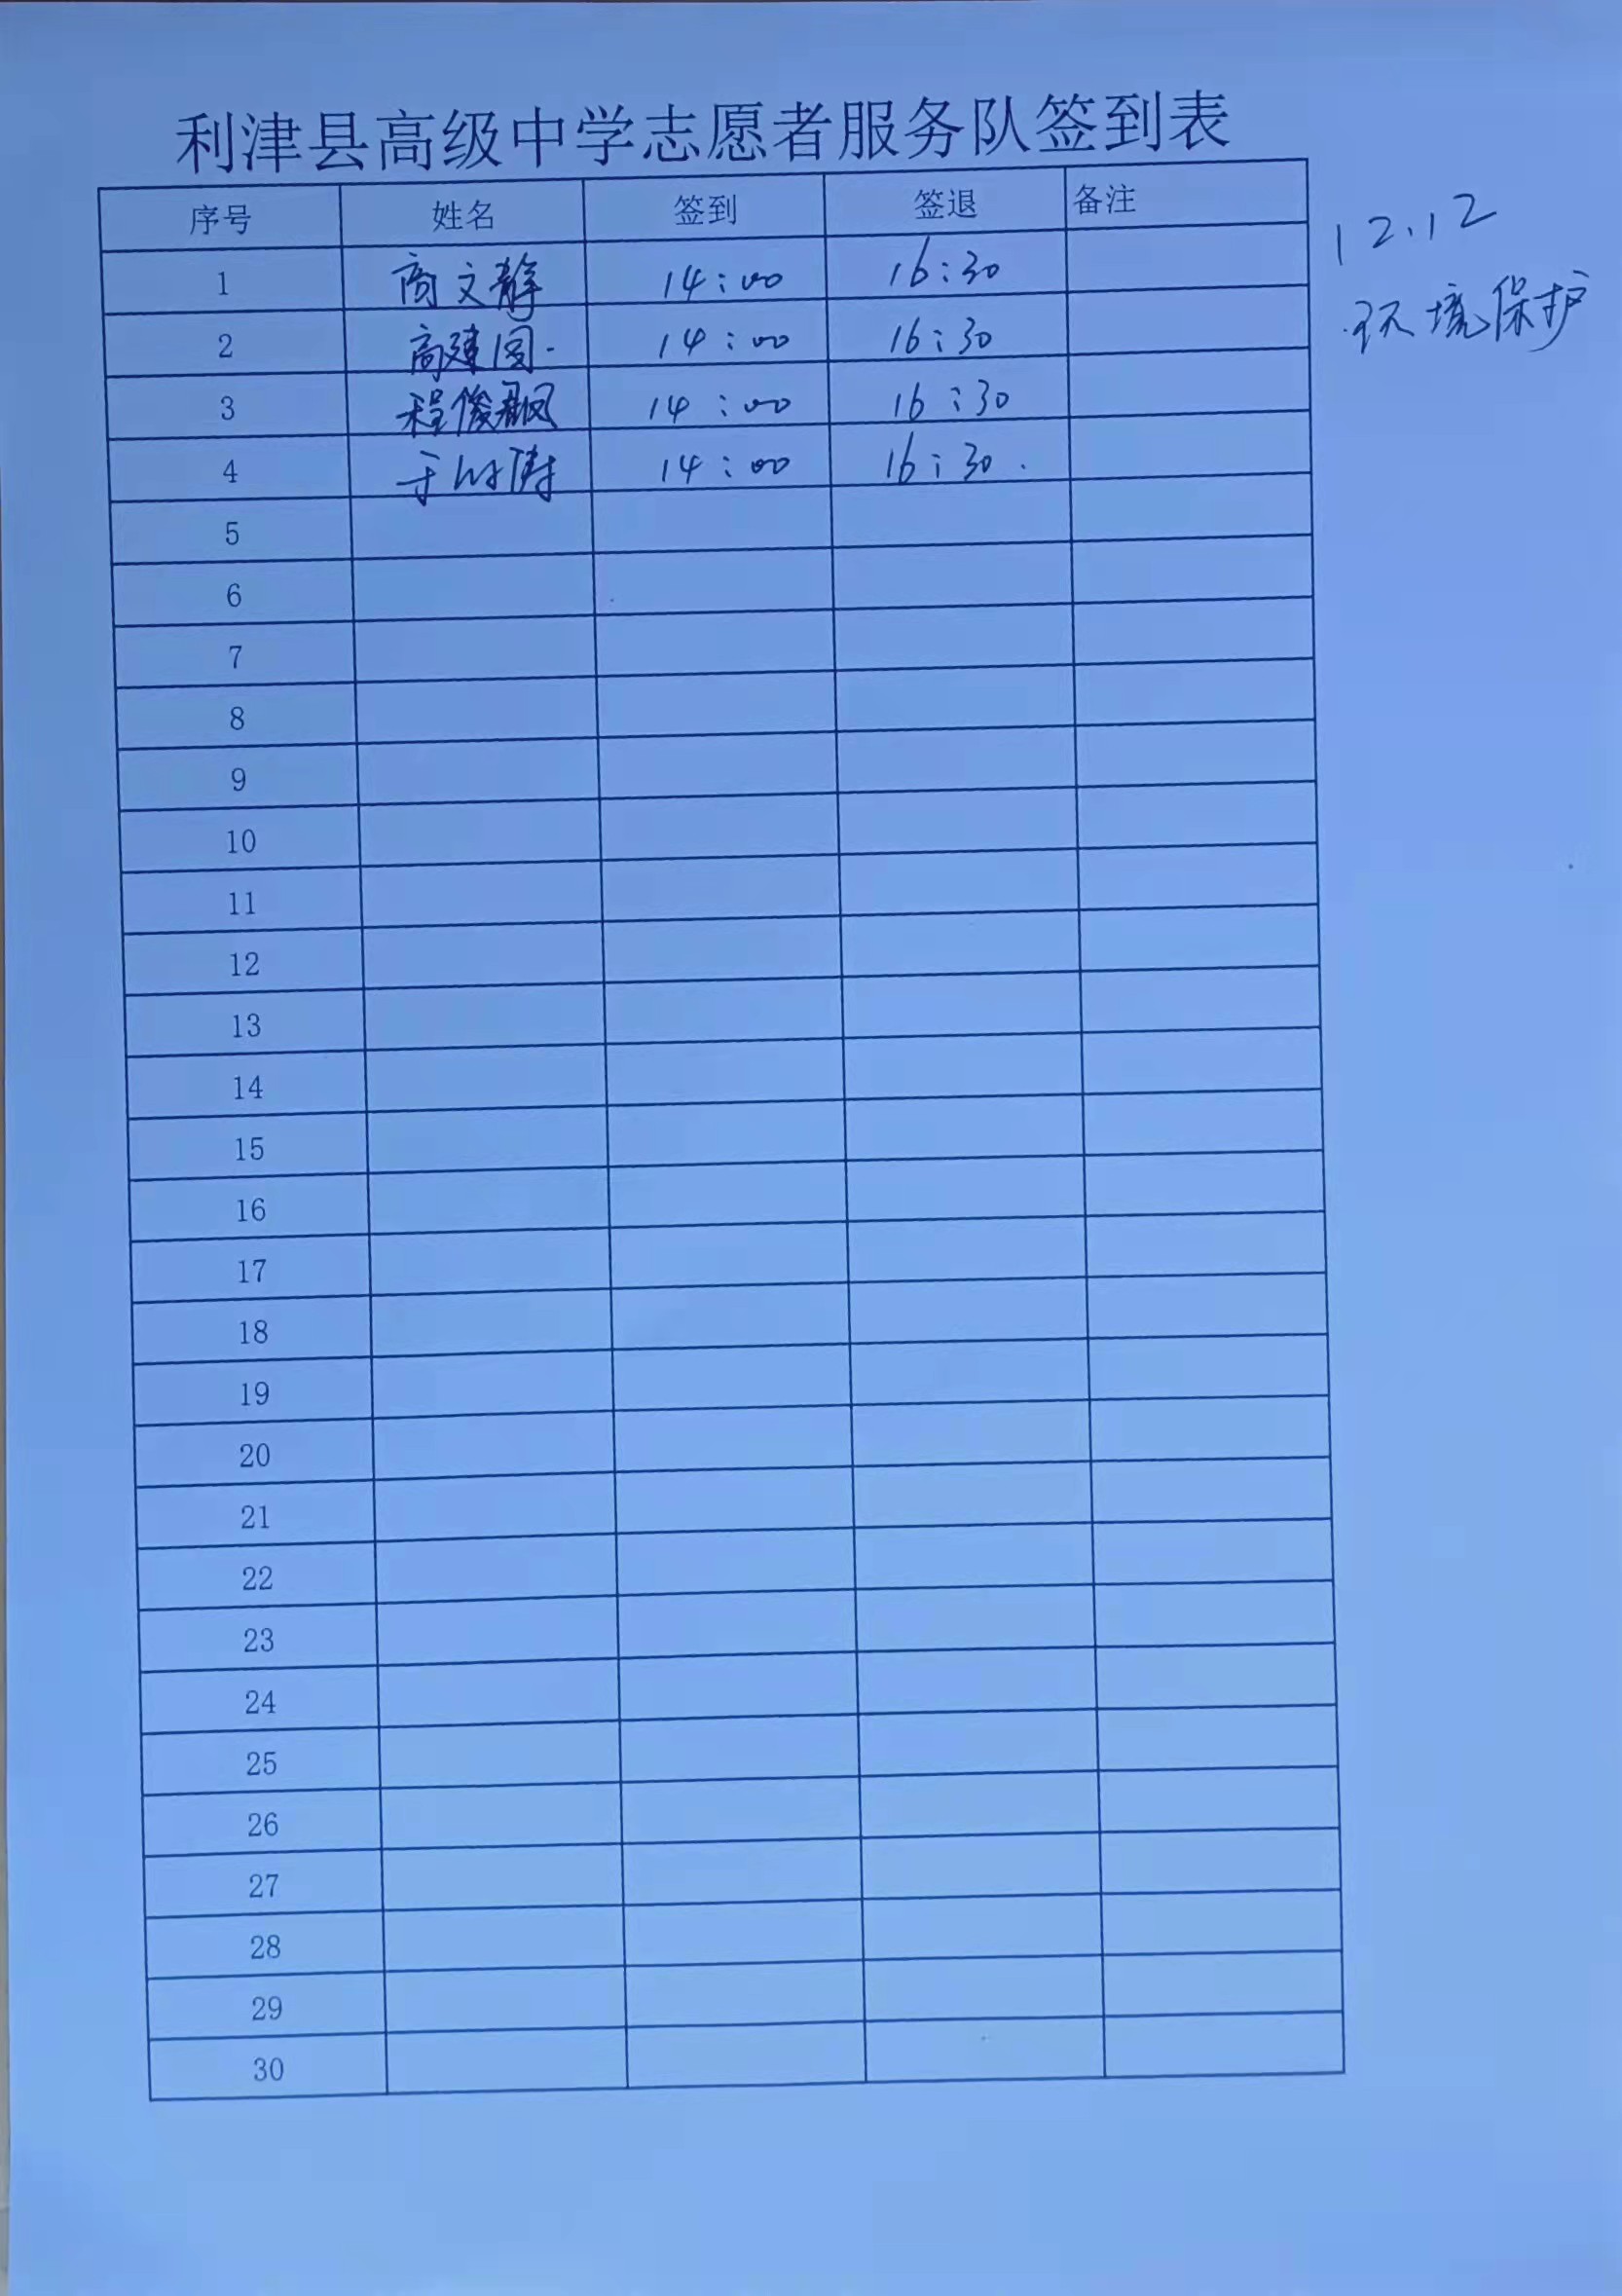 利津县高级中学志愿者服务队签到表
序号 姓名 签到 签退 备注
12.12
环境保护
1 商文静 14:00 16:30
2 高建国 14:00 16:30
3 程俊 14:00 16:30
4 于 14:00 16:30
5
6
7
8
9
10
11
12
13
14
15
16
17
18
19
20
21
22
23
24
25
26
27
28
29
30